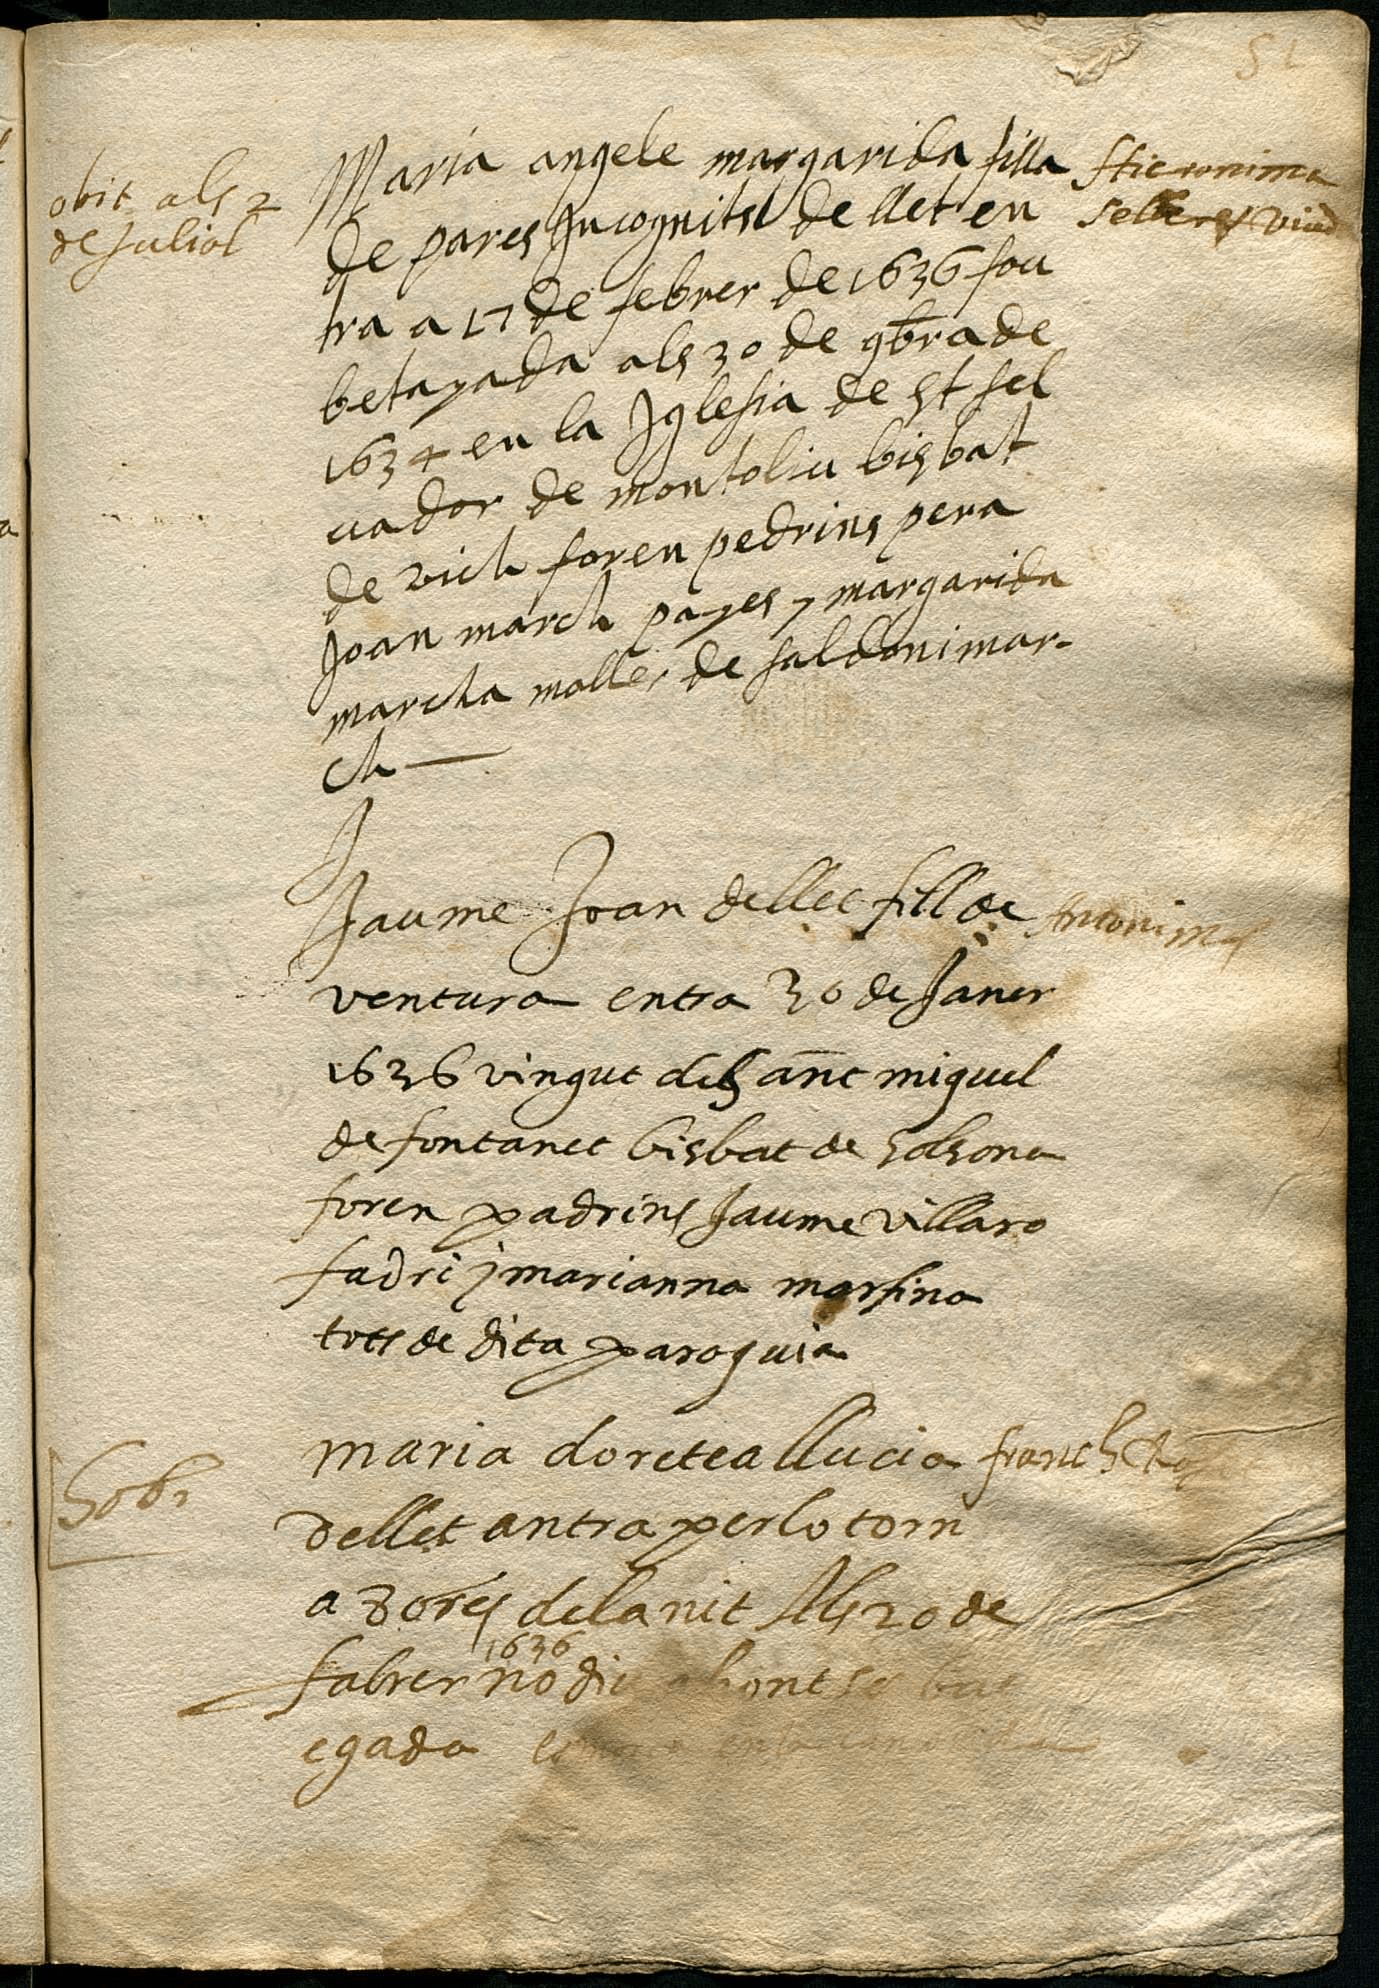 51
obit als 2
de Juliol
Maria angele margarida filla
de pares Jncognitsl de llet en
tra a 17 de febrer de 1636 fou
betayada als 30 de 9bra de
1634 en la Jglesia de st sel
uador de montoliu bisbat
de vich foren pedrins pera
Joan march payes y margarida
marcha moller de saldoni mar-
ch
Hieronima
selleres viud
Jaume Joan de llet fill de
ventura entra 30 de Janer
1636 vingut del sanc miquel
de fontanet bisbat de solsona
foren padrins Jaume villaro
fadri j marianna marsina
tots de dita paroquia
Antonim
Sobr
maria doretea llucia
de llet antra per lo torn
a 8 ores de la nit Als 20 de
1636
fabrer no diu ahont se
egada
franch